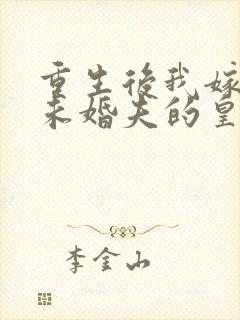 重生後我嫁
未婚夫的皇
李金山